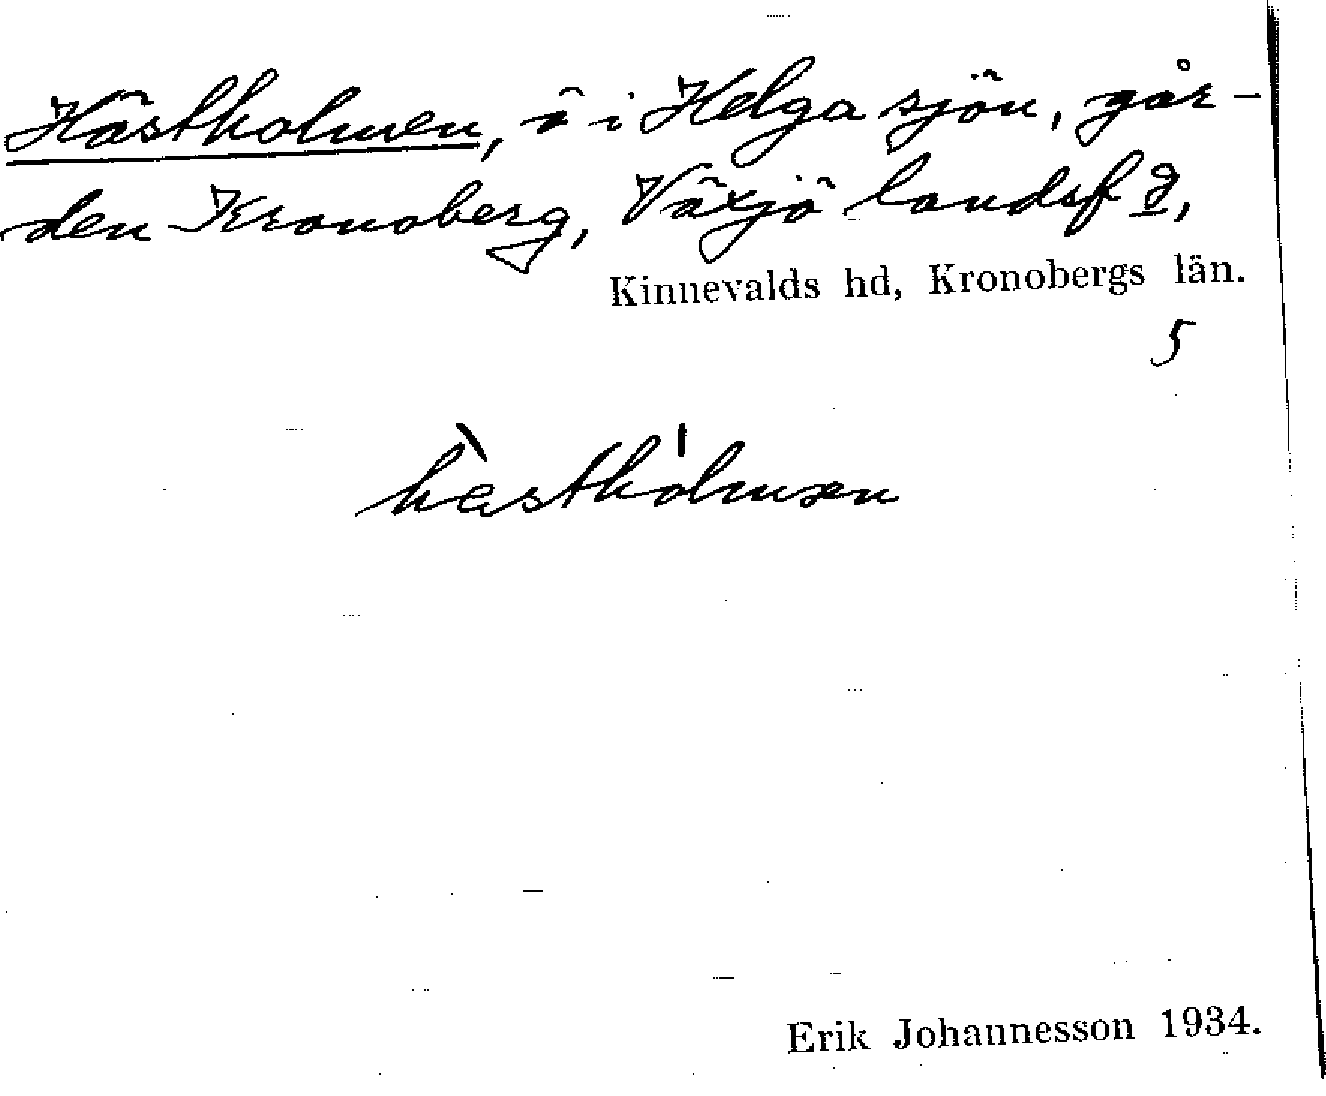 Hästholmen, ö i Helgasjön, går-
den Kronoberg, Växjö landsf g,
Kinnevalds hd, Kronobergs län.
5
hæ̀sthól​mən
Erik Johannesson 1934.